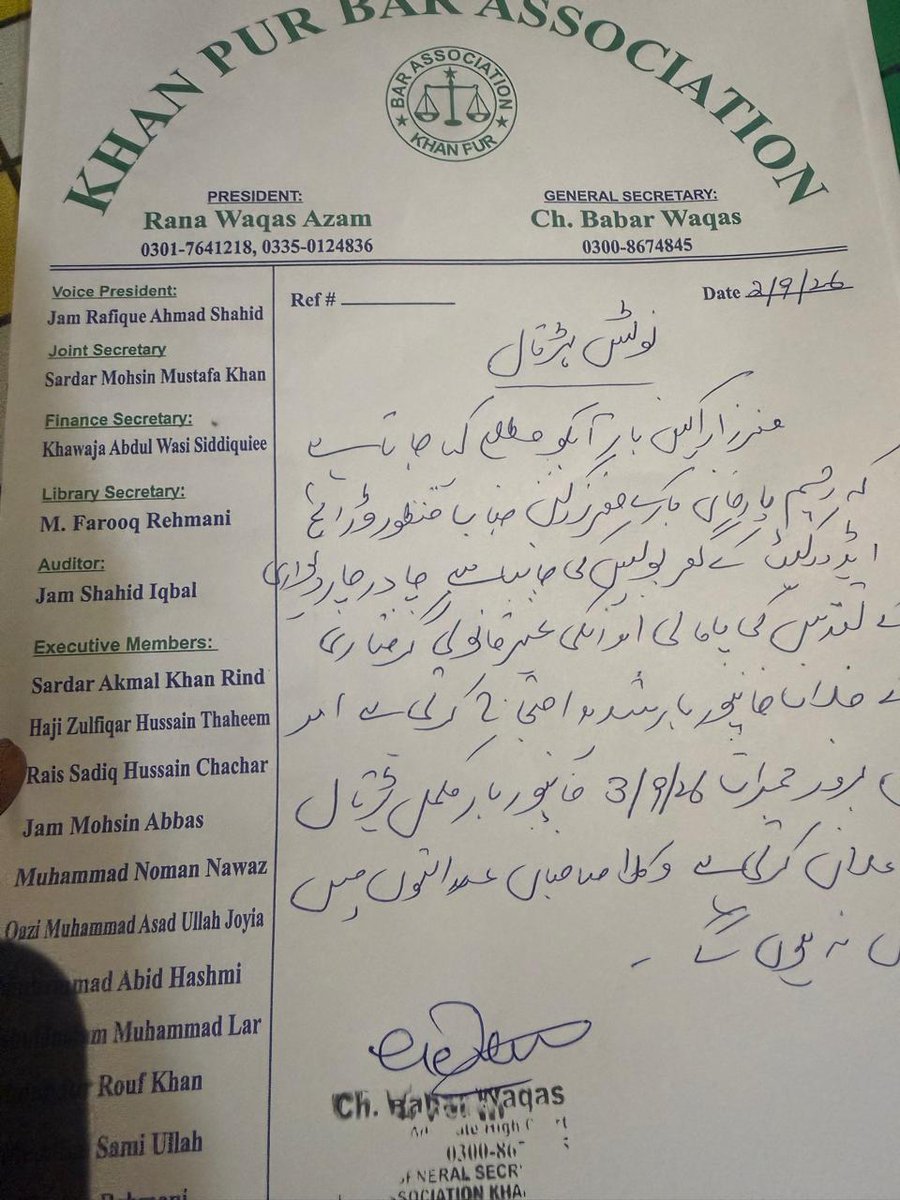 KHAN PUR BAR ASSOCIATION
BAR ASSOCIATION
KHAN PUR
PRESIDENT:
Rana Waqas Azam
0301-7641218, 0335-0124836
GENERAL SECRETARY:
Ch. Babar Waqas
0300-8674845
Ref #
Date 2/9/26
Voice President:
Jam Rafique Ahmad Shahid
Joint Secretary
Sardar Mohsin Mustafa Khan
Finance Secretary:
Khawaja Abdul Wasi Siddiquiee
Library Secretary:
M. Farooq Rehmani
Auditor:
Jam Shahid Iqbal
Executive Members:
Sardar Akmal Khan Rind
Haji Zulfiqar Hussain Thaheem
Rais Sadiq Hussain Chachar
Jam Mohsin Abbas
Muhammad Noman Nawaz
Qazi Muhammad Asad Ullah Joyia
Abid Hashmi
Muhammad Lar
Rouf Khan
Sami Ullah
نوٹس ہڑتال
معزز اراکین بار آپکو مطلع کیا جاتا ہے
کہ رحیم یار خان بار کے معزز رکن جناب منظور وڑائچ
ایڈووکیٹ کے گھر پولیس کی جانب سے چادر چار دیواری
کے تقدس کی پامالی اور انکی غیر قانونی گرفتاری
کے خلاف خانپور بار شدید احتجاج کرتی ہے اور
بروز جمعرات 3/9/26 خانپور بار مکمل ہڑتال
اعلان کرتی ہے وکلا صاحبان عدالتوں میں
نہ ہوں گے ۔
Ch. Babar Waqas
0300-86